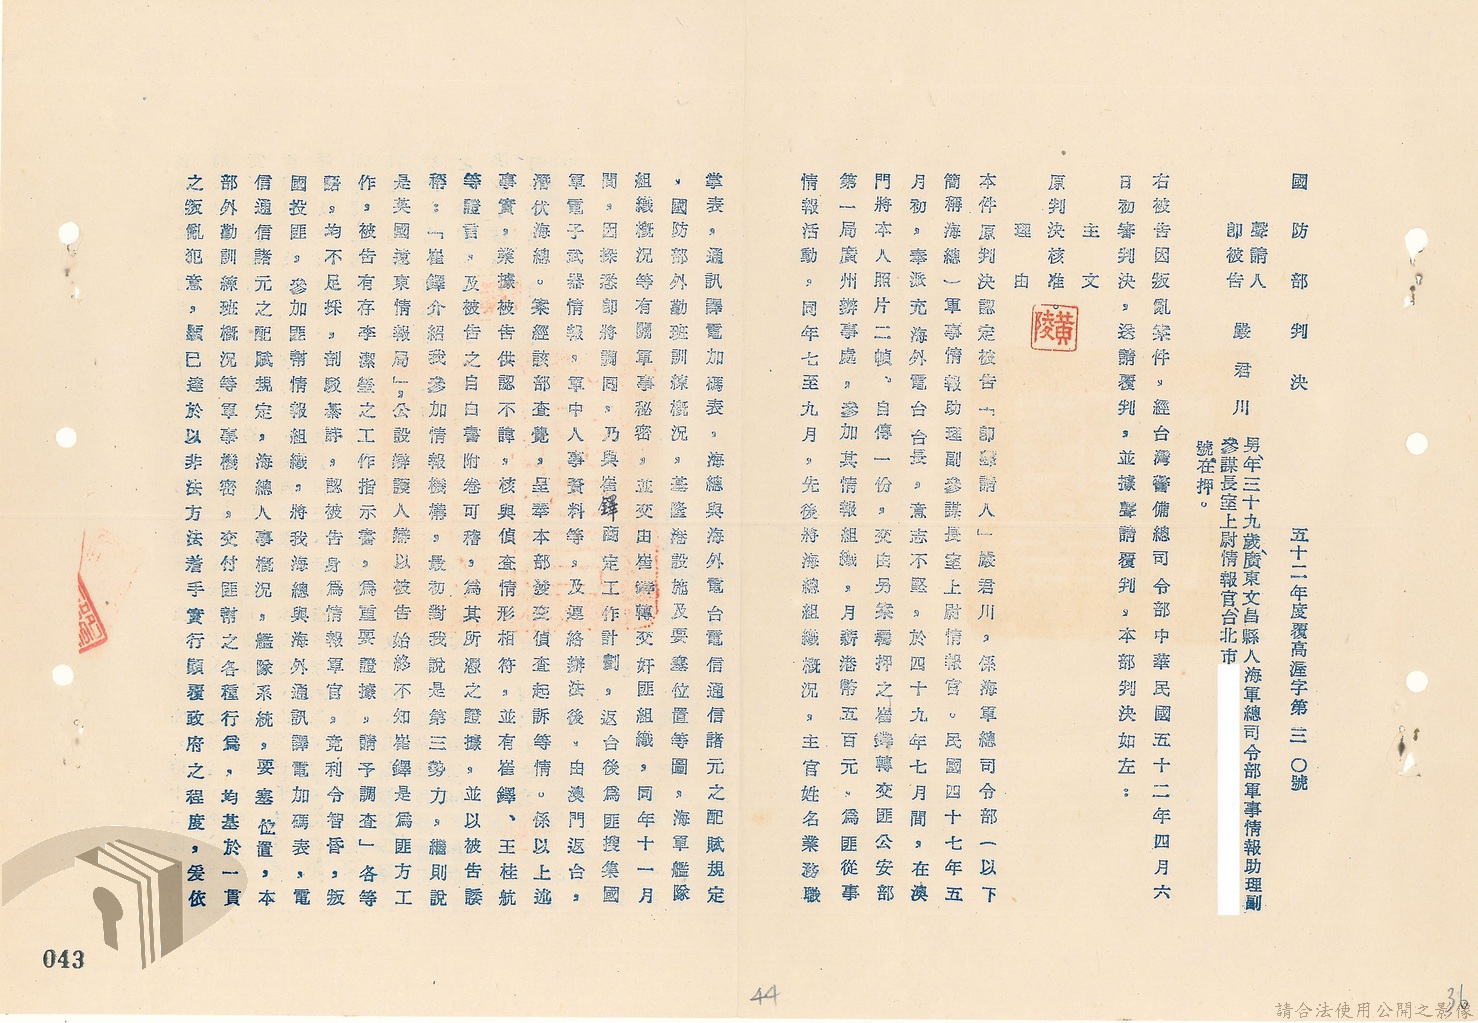 國防部判決 五十二年度覆高渥字第三一〇號
聲請人
即被告 嚴君川 男、年三十九歲、廣東文昌縣人海軍總司令部軍事情報助理副
參謀長室上尉情報官台北市
號在押。
右被告因叛亂案件，經台灣警備總司令部中華民國五十二年四月六
日初審判決，送請覆判，並據聲請覆判，本部判決如左：
主文
原判決核准。
黃陵
理由
本件原判決認定被告「即聲請人」嚴君川，係海軍總司令部（以下
簡稱海總）軍事情報助理副參謀長室上尉情報官。民國四十七年五
月初，奉派充海外電台台長，意志不堅，於四十九年七月間，在澳
門將本人照片二幀、自傳一份，交由另案羈押之崔鐸轉交匪公安部
第一局廣州辦事處，參加其情報組織，月薪港幣五百元，為匪從事
情報活動，同年七至九月，先後將海總組織概況，主官姓名業務職
掌表，通訊譯電加碼表，海總與海外電台電信通信諸元之配賦規定
，國防部外勤班訓練概況，基隆港設施及要塞位置等圖，海軍艦隊
組織概況等有關軍事秘密，並交由崔鐸轉交奸匪組織，同年十一月
間，因探悉即將調回，乃與崔鐸商定工作計劃，返台後為匪搜集國
軍電子武器情報，軍中人事資料等，及連絡辦法後，由澳門返台，
潛伏海總。案經該部查覺，呈奉本部發交偵查起訴等情。係以上述
事實，業據被告供認不諱，核與偵查情形相符，並有崔鐸、王桂航
等證言，及被告之自白書附卷可稽，為其所憑之證據，並以被告諉
稱：「崔鐸介紹我參加情報機構，最初對我說是第三勢力，繼則說
是英國遠東情報局」，公設辯護人辯以被告始終不知崔鐸是為匪方工
作，被告有存李潔瑩之工作指示書，為重要證據，請予調查」各等
語，均不足採，剖駁綦詳，認被告身為情報軍官，竟利令智昏，叛
國投匪，參加匪幫情報組織，將我海總與海外通訊譯電加碼表，電
信通信諸元之配賦規定，海總人事概況，艦隊系統，要塞位置，本
部外勤訓練班概況等軍事機密，交付匪幫之各種行為，均基於一貫
之叛亂犯意，顯已達於以非法方法著手實行顛覆政府之程度，爰依
043
44
36
請合法使用公開之影像